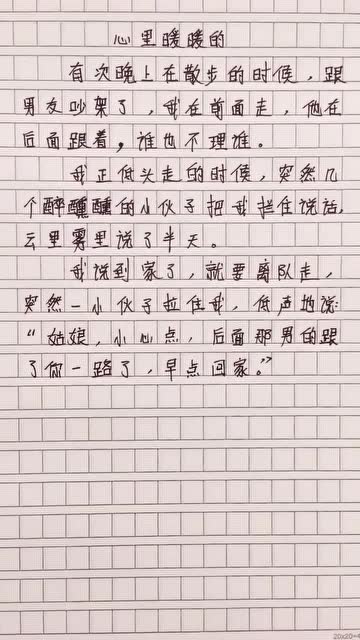 心里暖暖的
有次晚上在散步的时候，跟
男友吵架了，我在前面走，他在
后面跟着，谁也不理谁。
我正低头走的时候，突然几
个醉醺醺的小伙子把我拦住说话，
云里雾里说了半天。
我说到家了，就要离队走，
突然一小伙子拉住我，低声地说：
“姑娘，小心点，后面那男的跟
了你一路了，早点回家。”
20x20=4